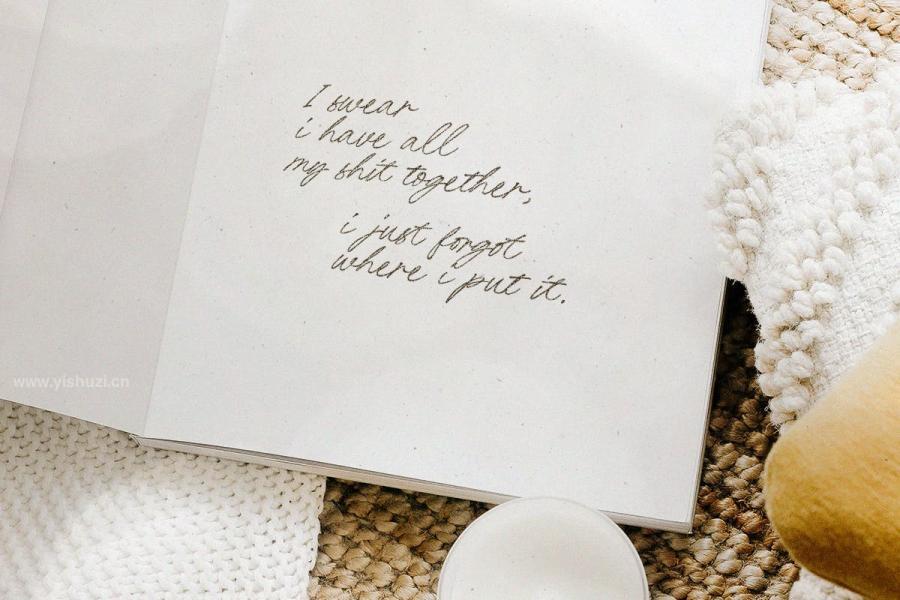 I swear
i have all
my shit together,
i just forgot
where i put it.
www.yishuzi.cn